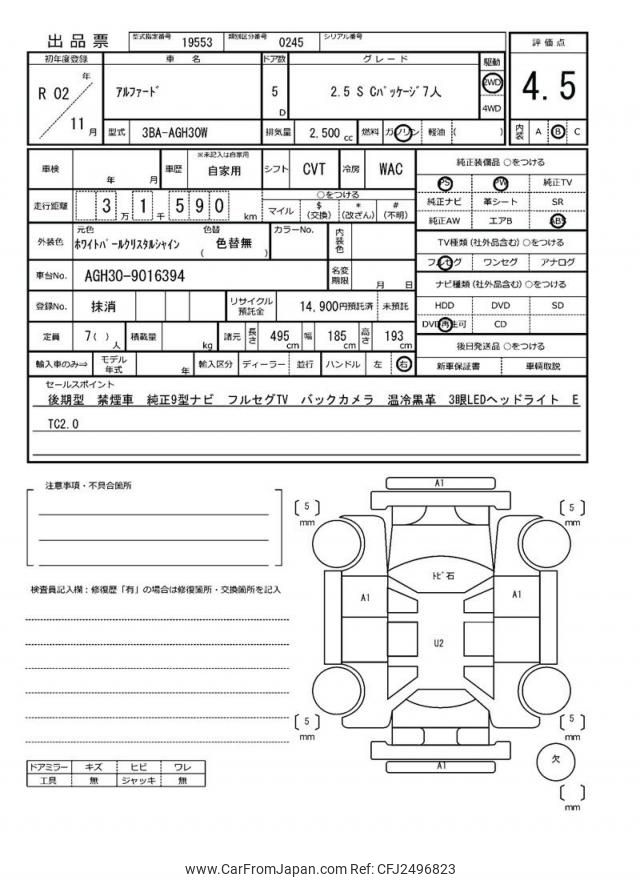 出品票 型式指定番号 19553 類別区分番号 0245 シリアル番号
初年度登録 車名 ドア数 グレード 駆動 評価点
R 02 年 11 月 アルファード 5 D 2.5 S Cパッケージ 7人 2WD 4WD 4.5
型式 3BA-AGH30W 排気量 2,500 cc 燃料 ガソリン 軽油 ( ) 内装 A B C
車検 年 月 車歴 ※未記入は自家用 自家用 シフト CVT 冷房 WAC
走行距離 3 万 1 千 5 9 0 km ○をつける
マイル $ (交換) * (改ざん) # (不明)
外装色 元色 ホワイトパールクリスタルシャイン 色替 ( 色替無 ) カラーNo. 内装色
車台No. AGH30-9016394 名変期限 月 日
登録No. 抹消 リサイクル預託金 14,900円預託済 未預託
定員 7( ) 人 積載量 kg 諸元 長さ 495 cm 幅 185 cm 高さ 193 cm
輸入車のみ⇒ モデル年式 年 輸入区分 ディーラー 並行 ハンドル 左 右
純正装備品 ○をつける
PS PW 純正TV
純正ナビ 革シート SR
純正AW エアB ABS
TV種類 (社外品含む) ○をつける
フルセグ ワンセグ アナログ
ナビ種類 (社外品含む) ○をつける
HDD DVD SD
DVD再生可 CD
後日発送品 ○をつける
新車保証書 車輌取説
セールスポイント
後期型 禁煙車 純正9型ナビ フルセグTV バックカメラ 温冷黒革 3眼LEDヘッドライト E
TC2.0
注意事項・不具合箇所
検査員記入欄：修復歴「有」の場合は修復箇所・交換箇所を記入
ドアミラー キズ ヒビ ワレ
工具 無 ジャッキ 無
A1
5 mm
5 mm
トビ石
A1
A1
U2
5 mm
5 mm
A1
欠
mm
www.CarFromJapan.com Ref: CFJ2496823